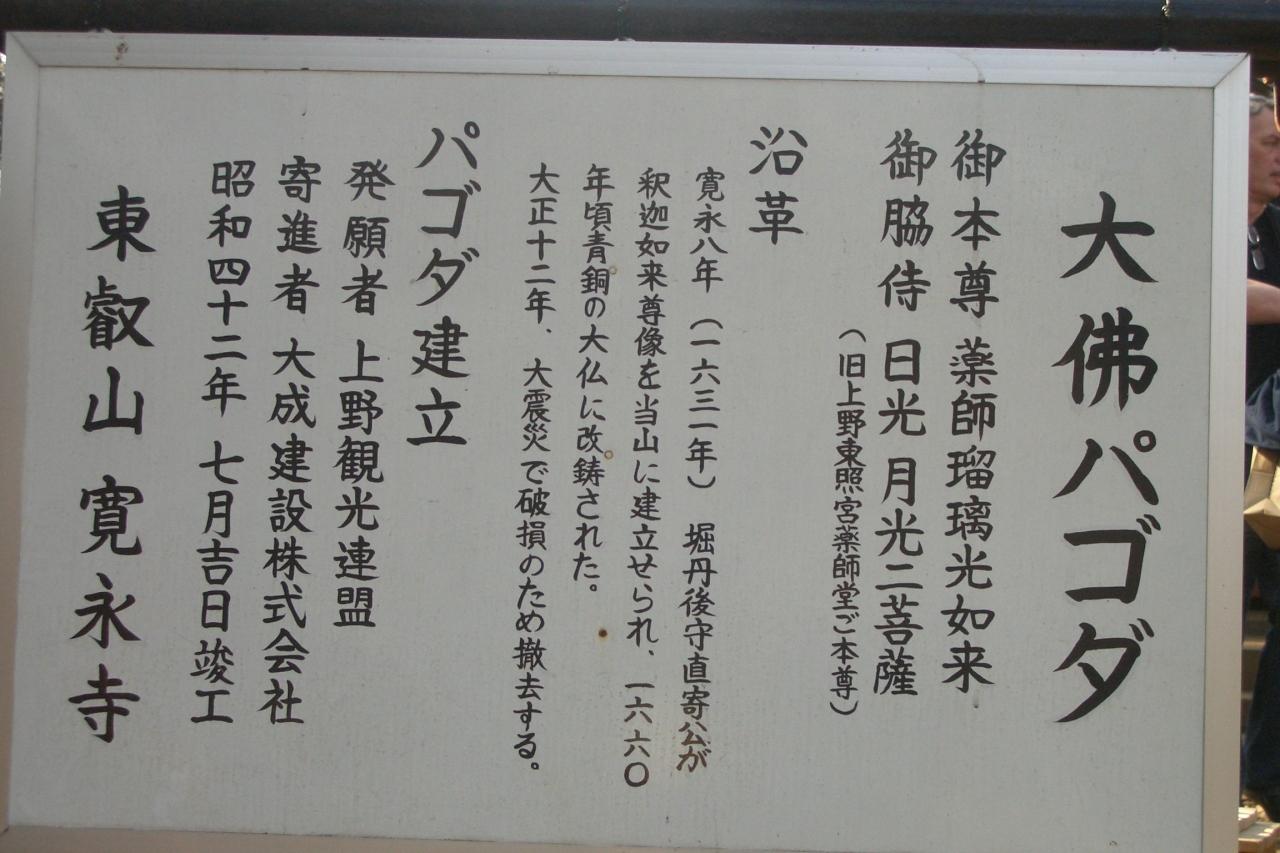 大佛パゴダ
御本尊 薬師瑠璃光如来
御脇侍 日光 月光二菩薩
(旧上野東照宮薬師堂ご本尊)
沿革
寛永八年(一六三一年) 堀丹後守直寄公が
釈迦如来尊像を当山に建立せられ、一六六〇
年頃青銅の大仏に改鋳された。
大正十二年、大震災で破損のため撤去する。
パゴダ建立
発願者 上野観光連盟
寄進者 大成建設株式会社
昭和四十二年 七月吉日竣工
東叡山 寛永寺